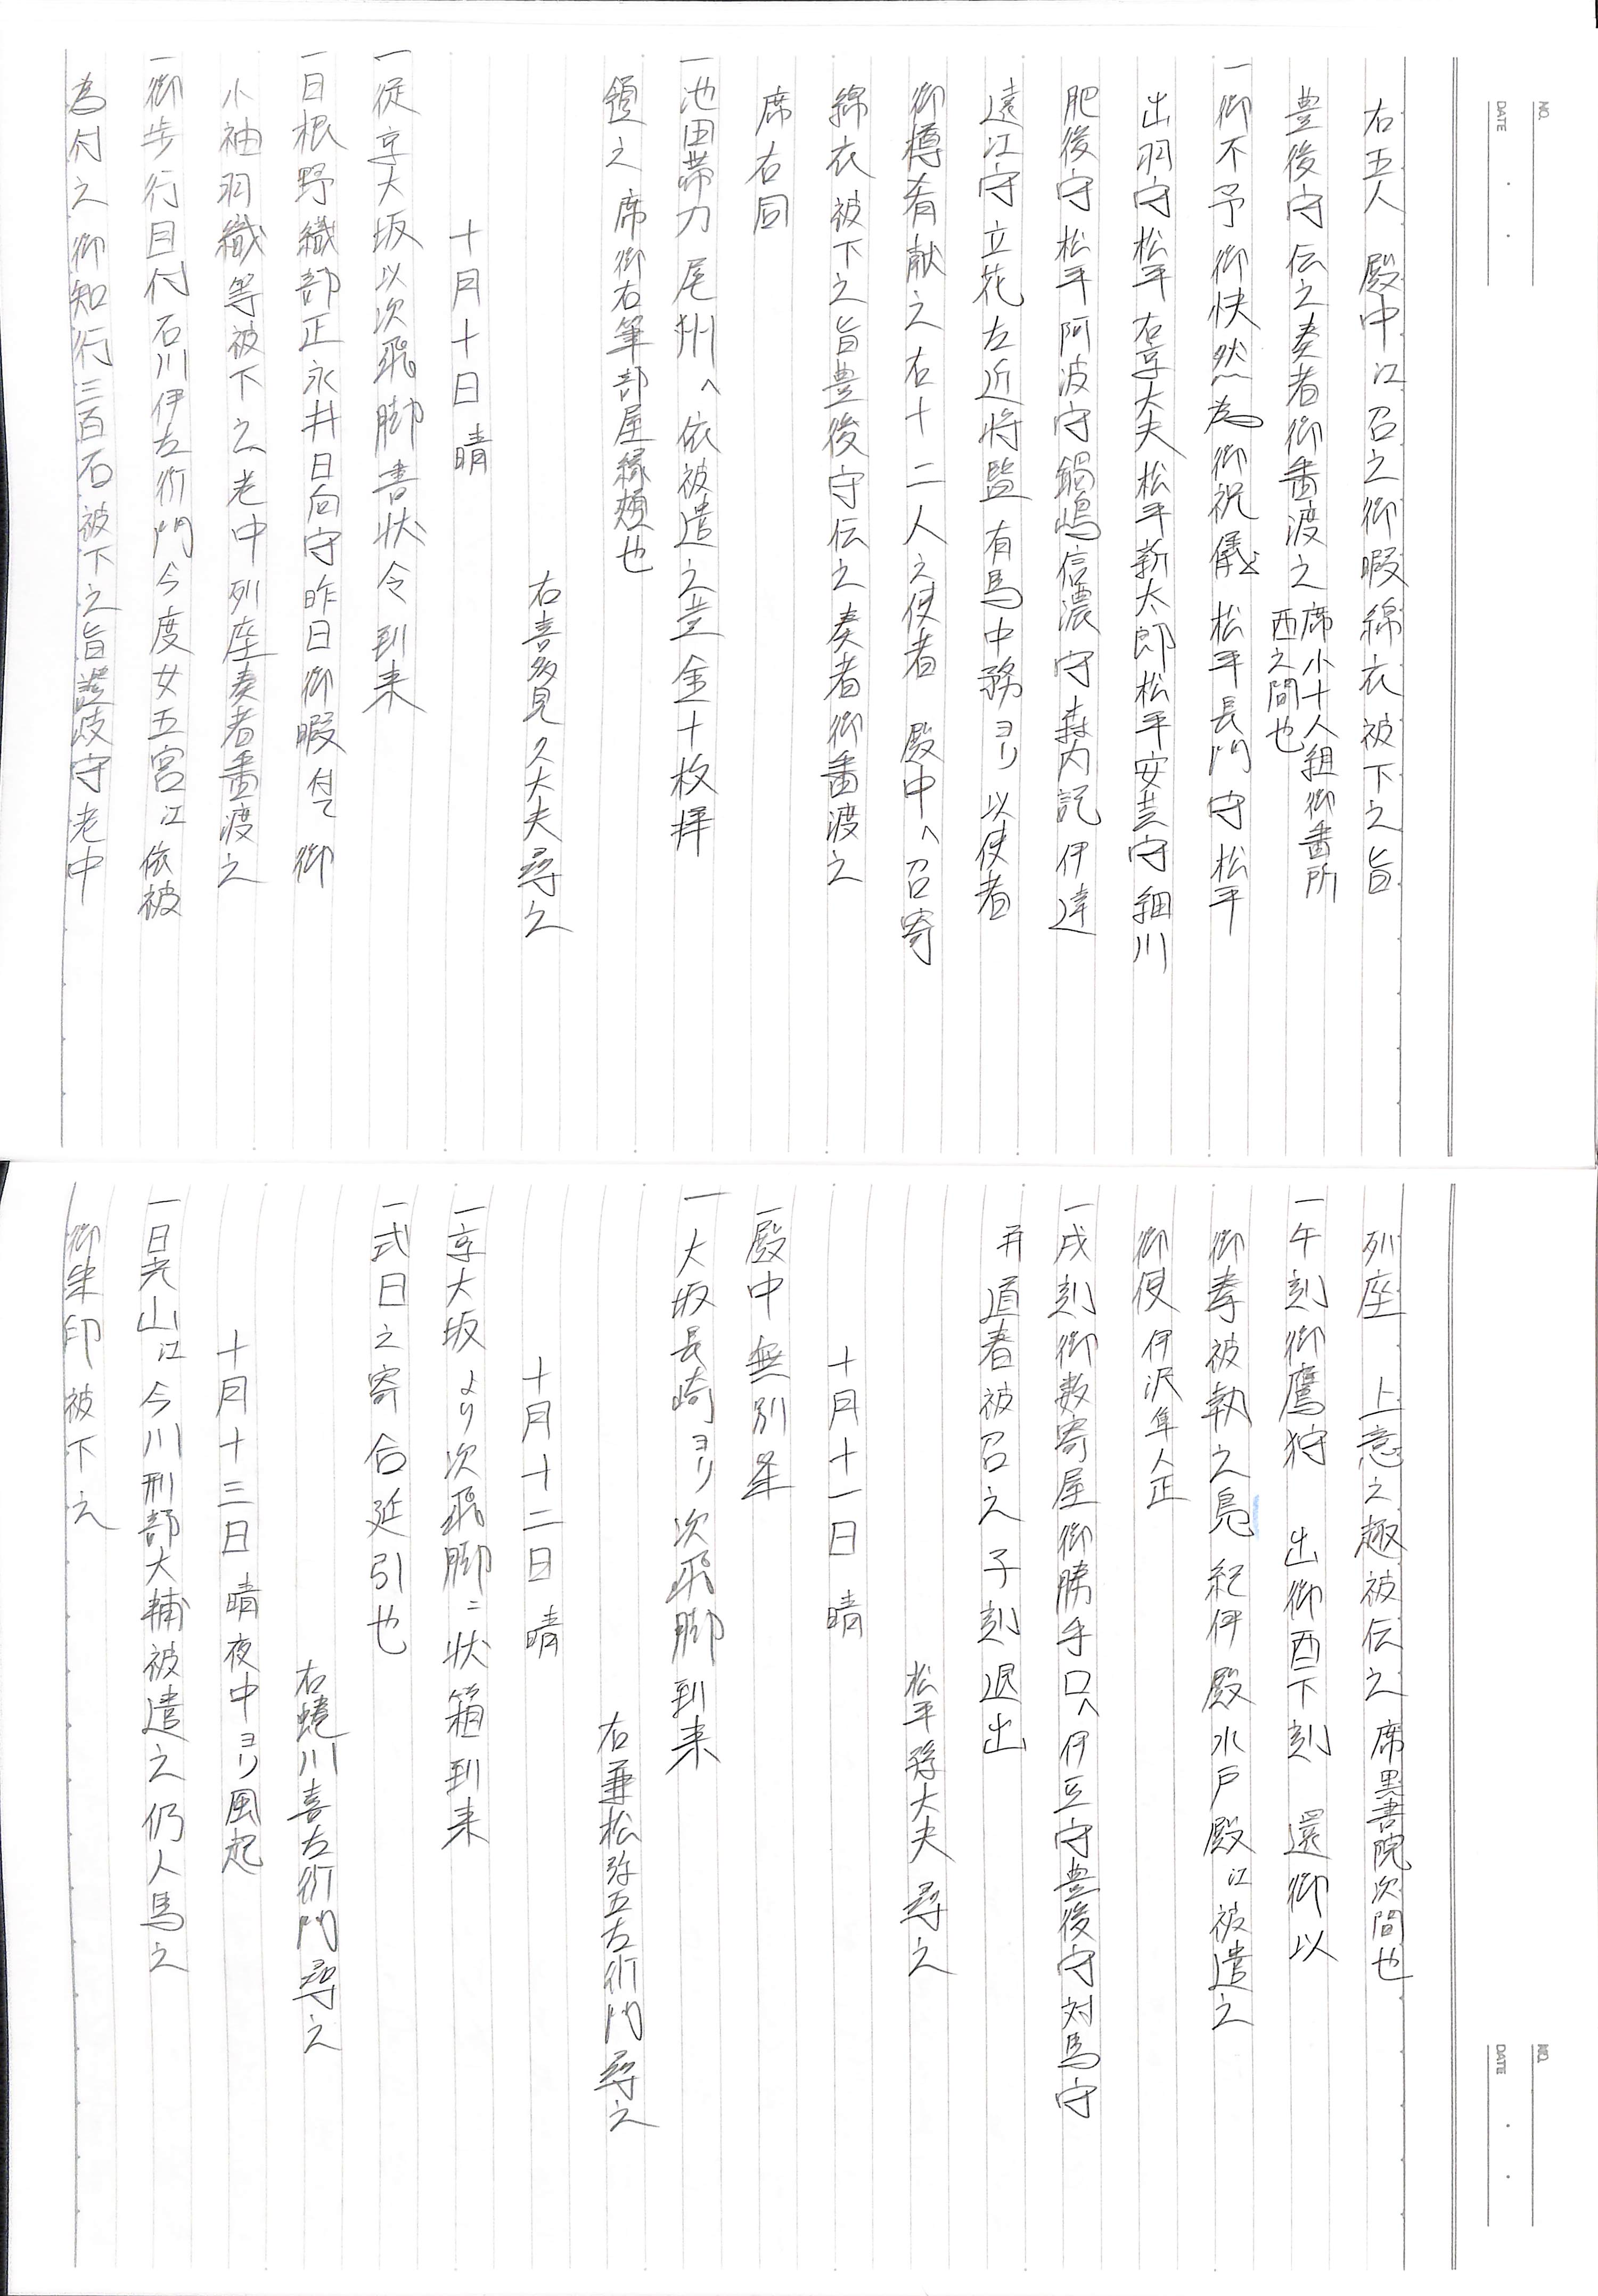 NO.
DATE
右五人　殿中江召之御暇綿衣被下之旨
豊後守伝之奏者御番渡之 席小十人組御番所
西之間也
一御不予御快然為御祝儀 松平長門守松平
出羽守松平右京大夫松平新太郎松平安芸守細川
肥後守松平阿波守鍋嶋信濃守森内記伊達
遠江守立花左近将監有馬中務ヨリ以使者
御樽肴献之右十二人之使者　殿中へ召寄
綿衣被下之旨豊後守伝之奏者御番渡之
席右同
一池田帯刀尾州へ依被遣之黄金十枚拝
領之 席御右筆部屋縁頬也
右喜多見久大夫尋之
十月十日 晴
一従京大坂以次飛脚書状令到来
一日根野織部正永井日向守昨日御暇付て御
小袖羽織等被下之老中列座奏者番渡之
一御歩行目付石川伊左衛門今度女五宮江依被
為付之御知行三百石被下之旨讃岐守老中
NO.
DATE
列座　上意之趣被伝之 席黒書院次間也
一午刻御鷹狩　出御酉下刻　還御以
御拳被執之鳧紀伊殿水戸殿江被遣之
御使 伊沢隼人正
一戌刻御数寄屋御勝手口へ伊豆守豊後守対馬守
并道春被召之子刻退出
松平孫大夫尋之
十月十一日 晴
一殿中無別条
一大坂長崎ヨリ次飛脚到来
右兼松弥五左衛門尋之
十月十二日 晴
一京大坂より次飛脚ニ状箱到来
一式日之寄合延引也
右蜷川喜左衛門尋之
十月十三日 晴夜中ヨリ風起
一日光山江今川刑部大輔被遣之仍人馬之
御朱印被下之